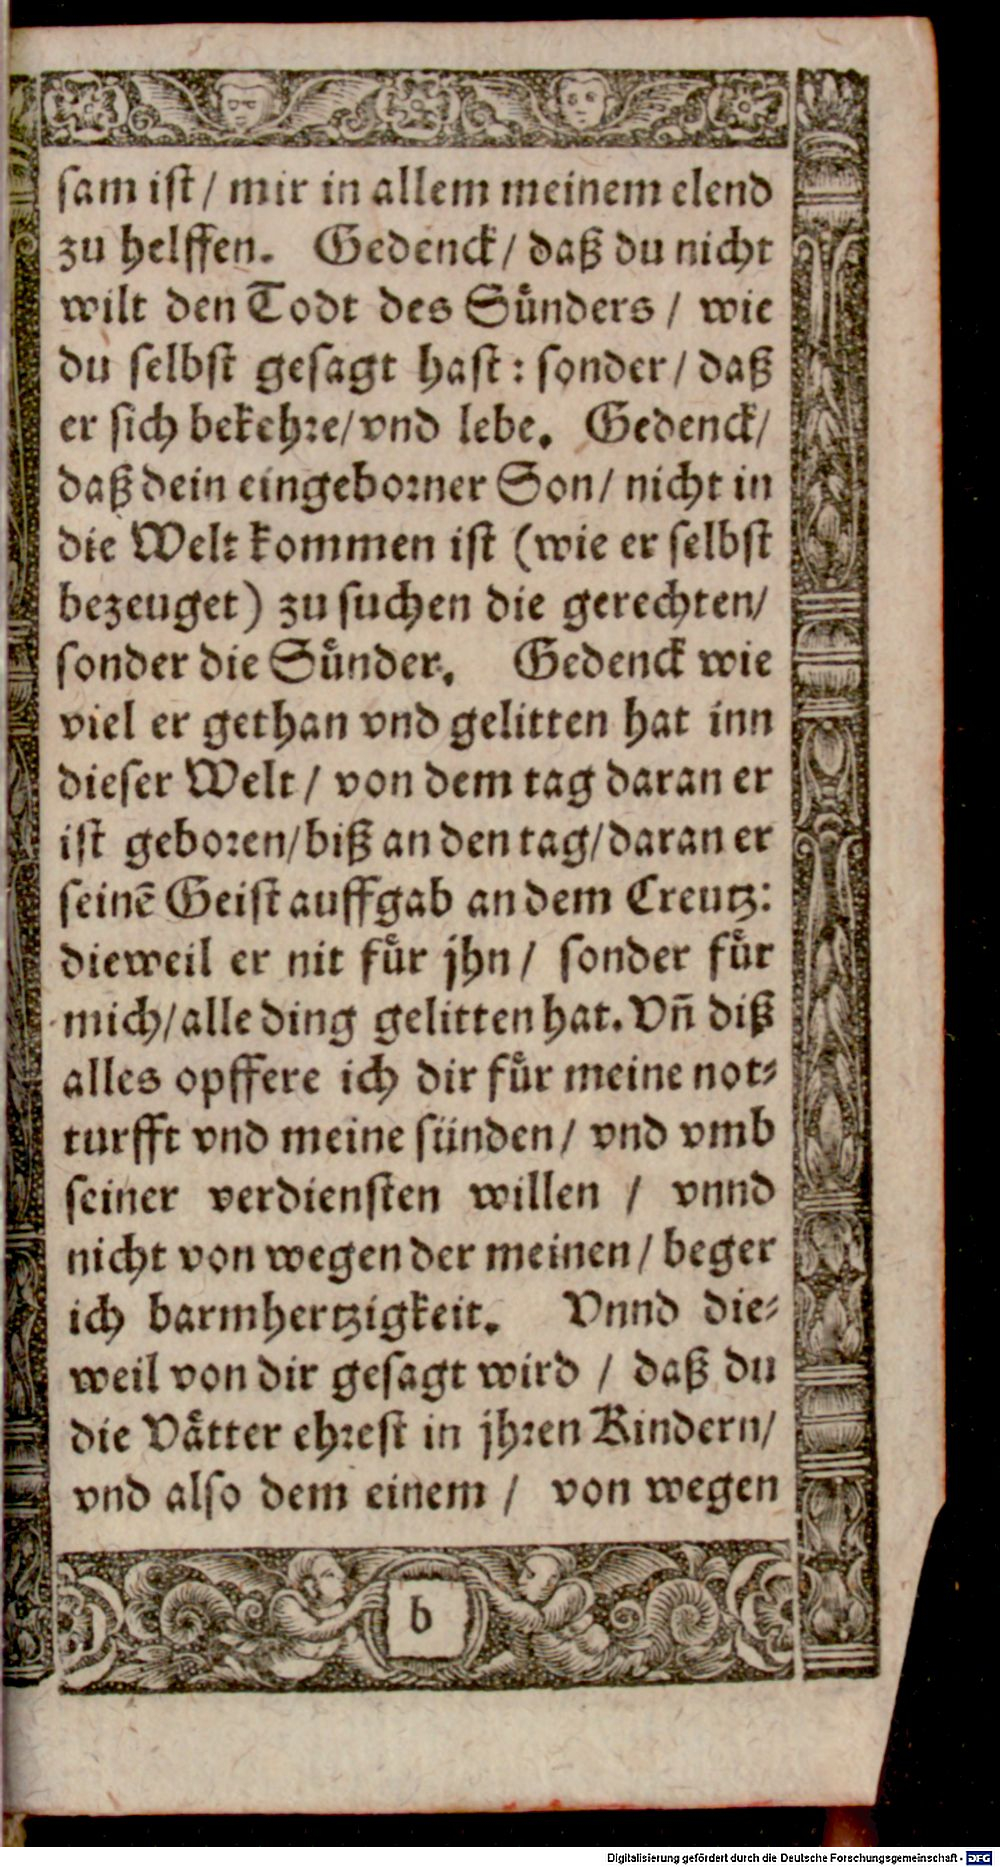 sam ist / mir in allem meinem elend
zu helffen. Gedenck / daß du nicht
wilt den Todt des Sünders / wie
du selbst gesagt hast : sonder / daß
er sich bekehre / vnd lebe. Gedenck /
daß dein eingeborner Son / nicht in
die Welt kommen ist (wie er selbst
bezeuget) zu suchen die gerechten /
sonder die Sünder. Gedenck wie
viel er gethan vnd gelitten hat inn
dieser Welt / von dem tag daran er
ist geboren / biß an den tag / daran er
seinē Geist auffgab an dem Creutz:
dieweil er nit für jhn / sonder für
mich / alle ding gelitten hat. Vñ diß
alles opffere ich dir für meine not⸗
turfft vnd meine sünden / vnd vmb
seiner verdiensten willen / vnnd
nicht von wegen der meinen / beger
ich barmhertzigkeit. Vnnd die⸗
weil von dir gesagt wird / daß du
die Vätter ehrest in jhren Kindern /
vnd also dem einem / von wegen
b
Digitalisierung gefördert durch die Deutsche Forschungsgemeinschaft - DFG